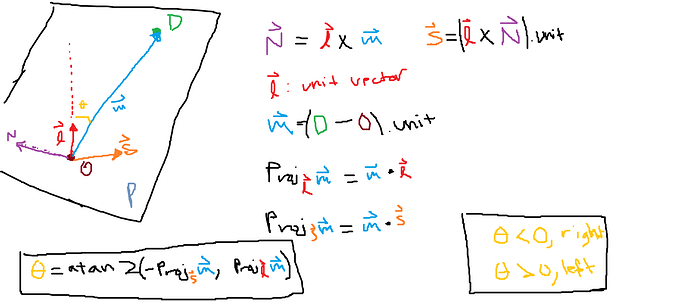 D
θ
m⃗
N
l⃗
s⃗
O
P
N⃗ = l⃗ × m⃗
s⃗ = (l⃗ × N⃗).unit
l⃗ : unit vector
m⃗ = (D − O).unit
Proj_l⃗ m⃗ = m⃗ · l⃗
Proj_s⃗ m⃗ = m⃗ · s⃗
θ = atan2(-Proj_s⃗ m⃗, Proj_l⃗ m⃗)
θ < 0, right
θ > 0, left